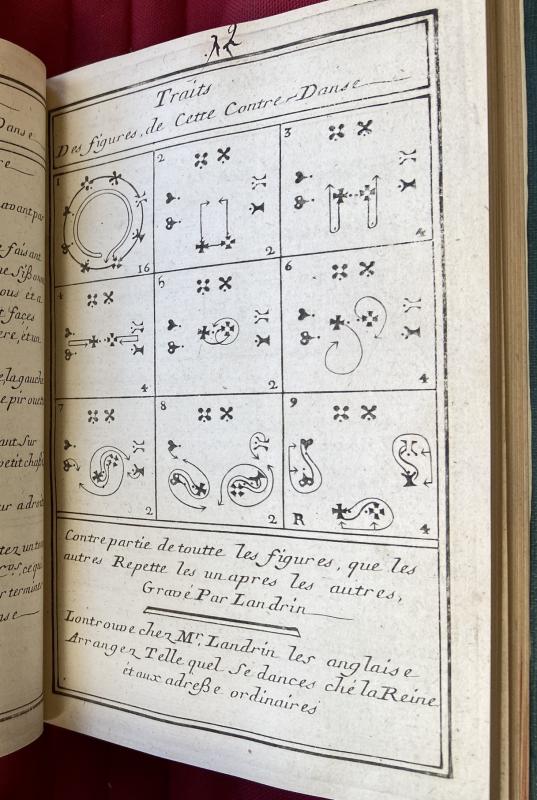 12
Traits
Des figures, de Cette Contre-Danse
1
16
2
2
3
4
4
4
5
2
6
4
7
2
8
2
9
R
4
Contrepartie de toutte les figures, que les
autres Repette les un apres les autres,
Gravé Par Landrin
Lontrouve chez Mr. Landrin les anglaise
Arrangez Telle quel se dances ché la Reine
et aux adresse ordinaires
Danse
re
avant par
faisant
ne Sissonne
ous et a
faces
ere, et un
e, la gauche
e pirouette
ant Sur
petit chassé
ur a droite
tez un tem
ce qu
r terminer
nse